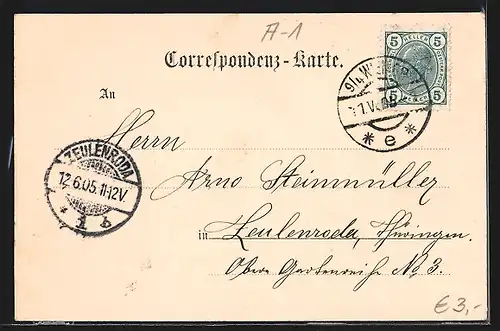 A-1
Correspondenz-Karte.
An
5 HELLER 5
5 5
9/4 WIEN
* e *
Herrn
ZEULENRODA
12.6.05. 11-12V.
* 1 b
Arno Steinmüller
in Zeulenroda, Thüringen.
Obere Gartenreihe No 3.
€ 3,-